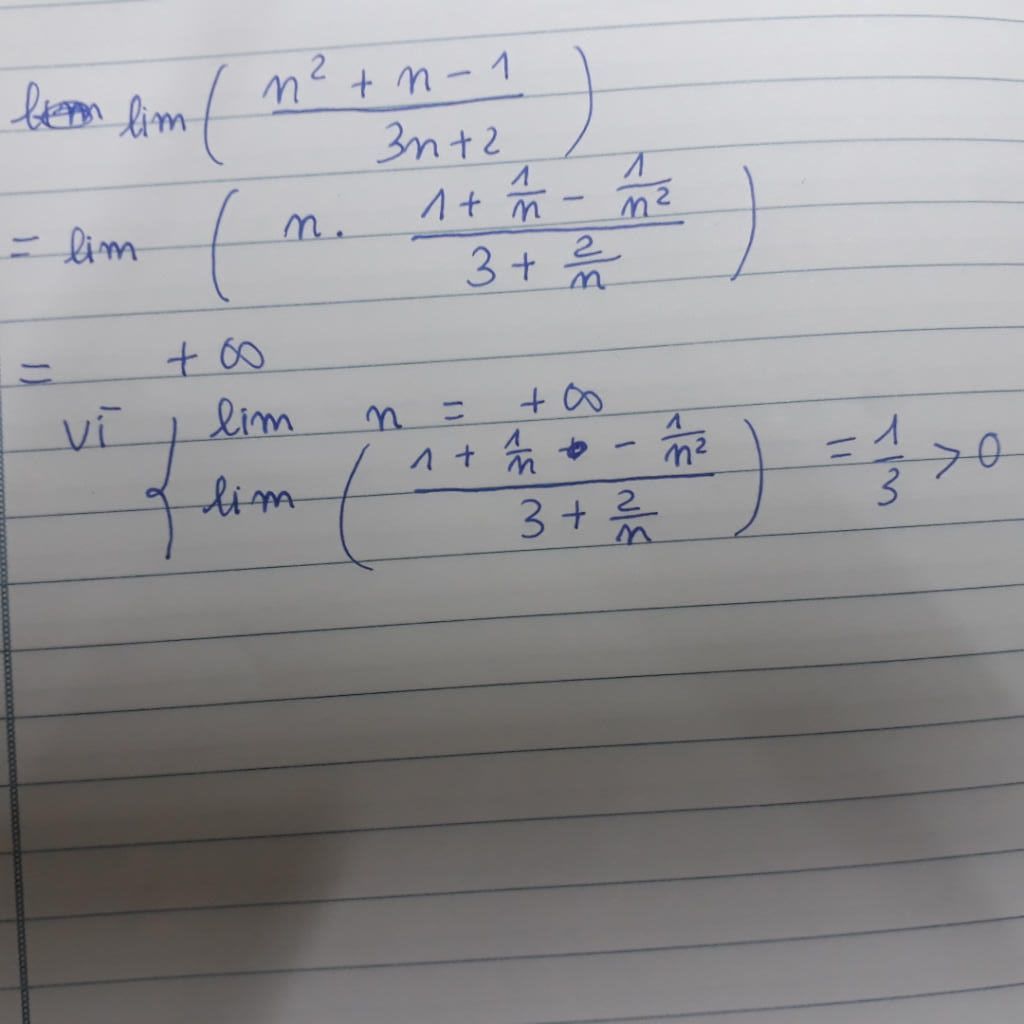 lim ( (n² + n - 1) / (3n + 2) )
= lim ( n. (1 + 1/n - 1/n²) / (3 + 2/n) )
= +∞
vì { lim n = +∞
lim ( (1 + 1/n - 1/n²) / (3 + 2/n) ) = 1/3 > 0